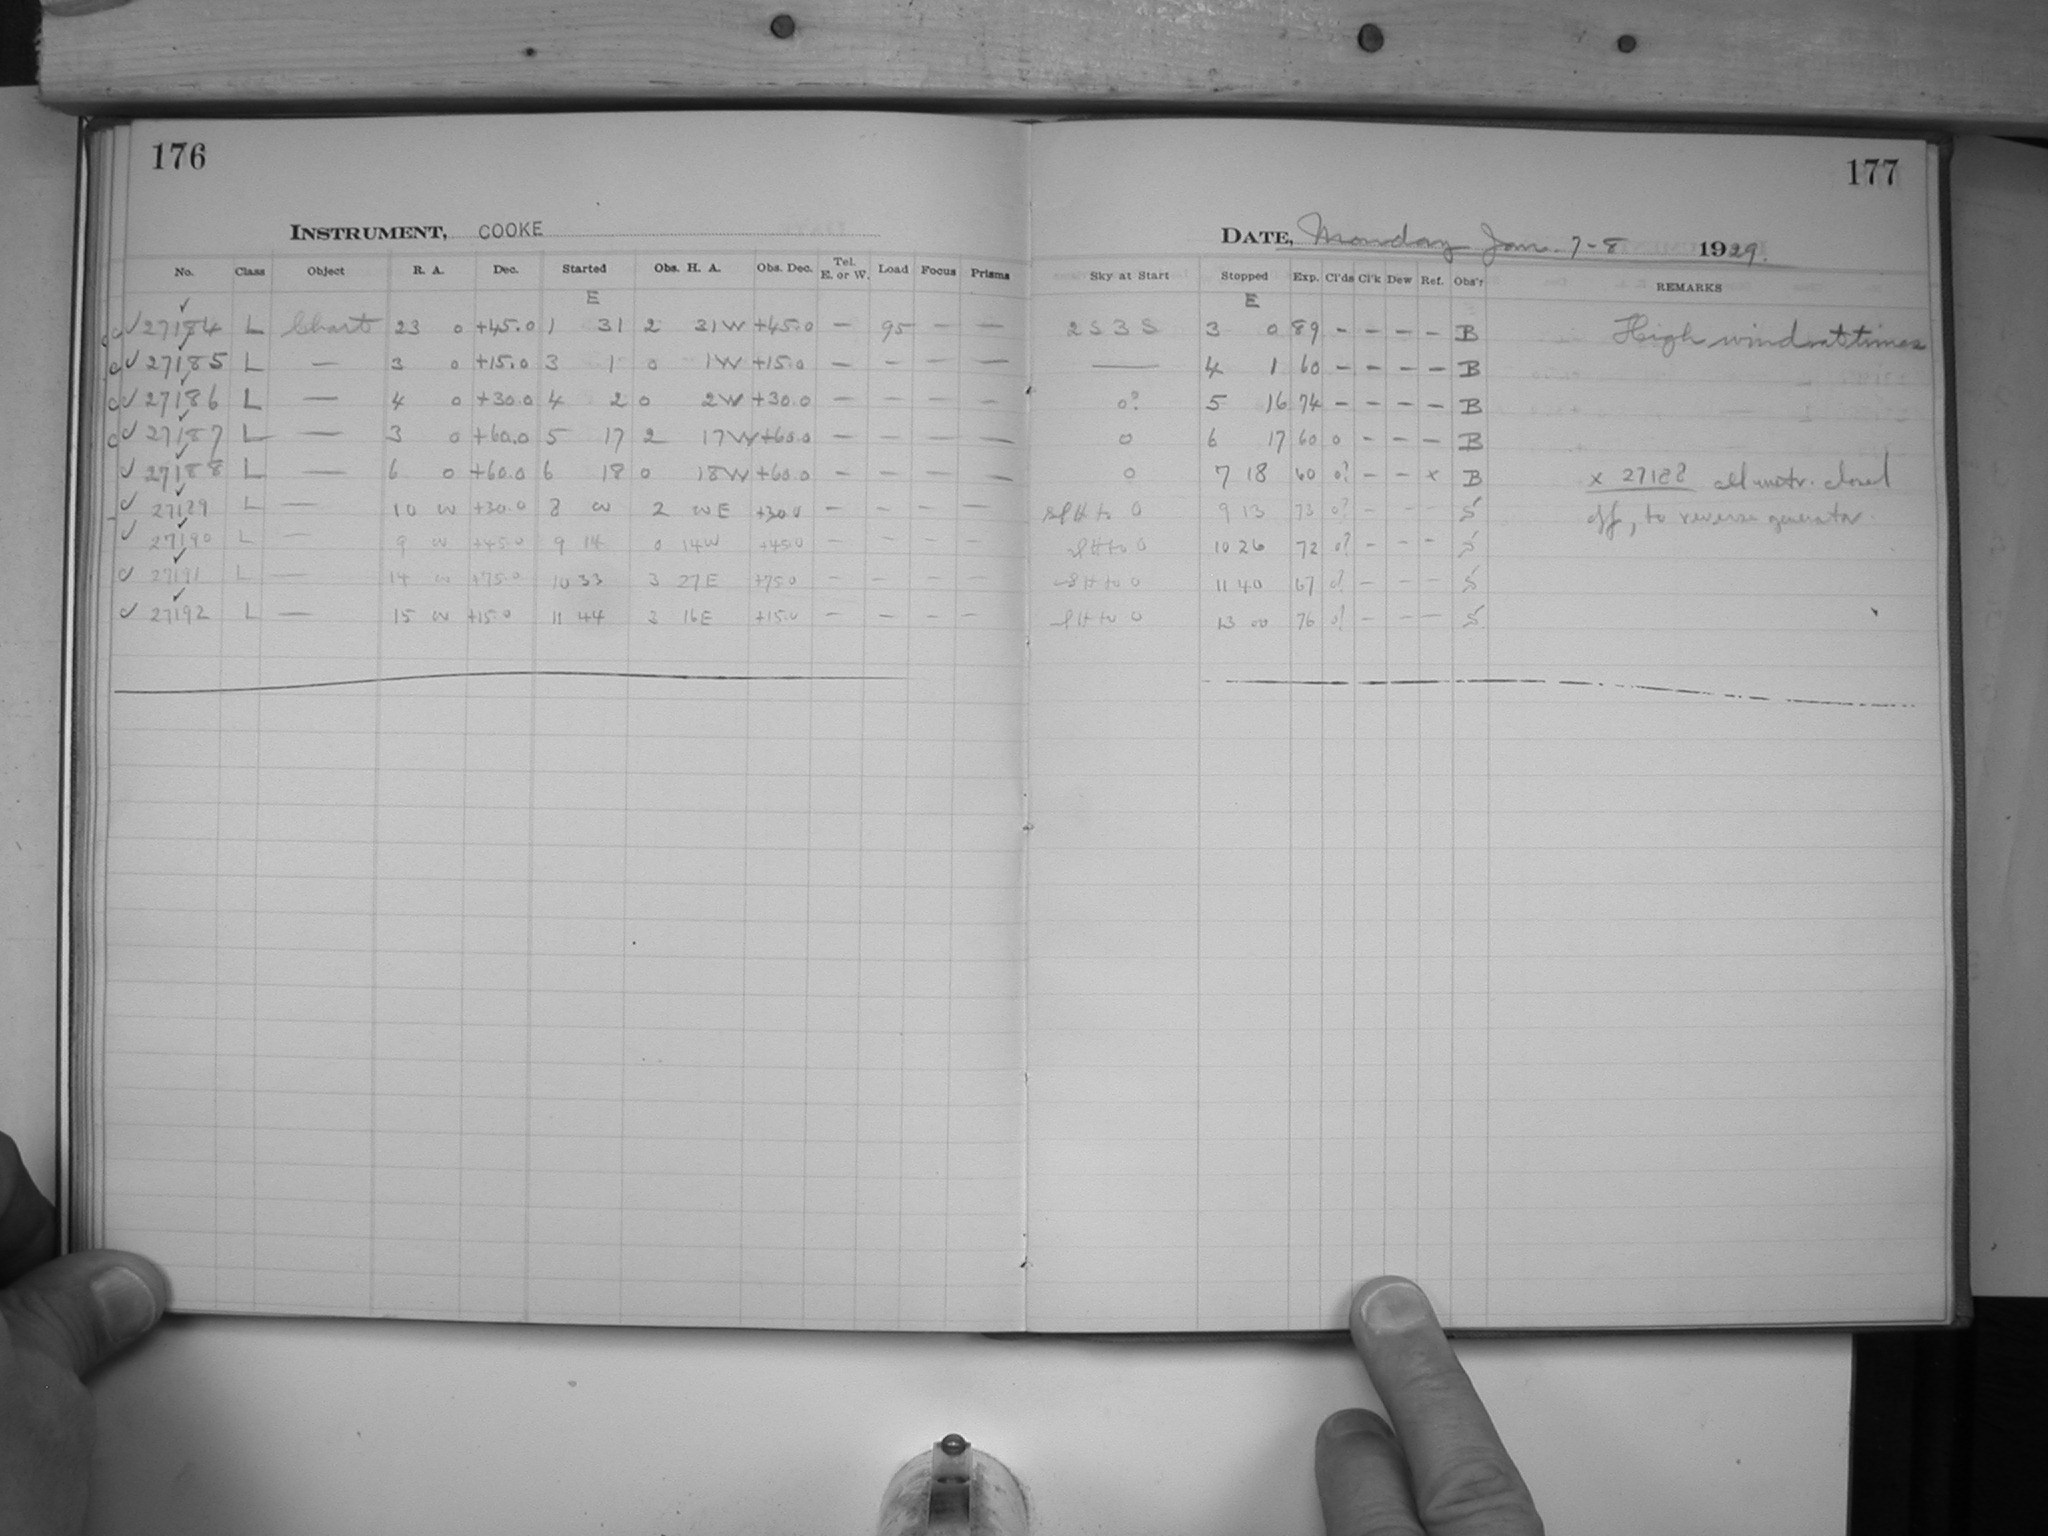 176
177
INSTRUMENT, COOKE
DATE, Monday Jan. 7-8 1929.
No. Class Object R. A. Dec. Started Obs. H. A. Obs. Dec. Tel. E. or W. Load Focus Prisms Sky at Start Stopped Exp. Cl'ds Cl'k Dew Ref. Obs'r REMARKS
E E
c ✓ 27184 L Chart 23 0 +45.0 1 31 2 31W +45.0 — 95 — — 2 S 3 S 3 0 89 - - - - B High wind at times
c ✓ 27185 L — 3 0 +15.0 3 1 0 1W +15.0 — — — — — 4 1 60 - - - - B
c ✓ 27186 L — 4 0 +30.0 4 2 0 2W +30.0 — — — — 0? 5 16 74 - - - - B
c ✓ 27187 L — 3 0 +60.0 5 17 2 17W +60.0 — — — — 0 6 17 60 0 - - - B
✓ 27188 L — 6 0 +60.0 6 18 0 18W +60.0 — — — — 0 7 18 60 0? - - x B x 27188 all instr. closed
✓ 27189 L — 10 +30.0 8 2 E +30.0 — — — — to 0 9 13 73 0? - - - S off, to reverse generator.
✓ 27190 L — 9 +45.0 9 14 0 14W +45.0 — — — — to 0 10 26 72 0? - - - S
✓ 27191 L — 14 +75.0 10 33 3 27E +75.0 — — — — to 0 11 40 67 0? - - - S
✓ 27192 L — 15 +15.0 11 44 3 16E +15.0 — — — — to 0 13 00 76 0? - - - S